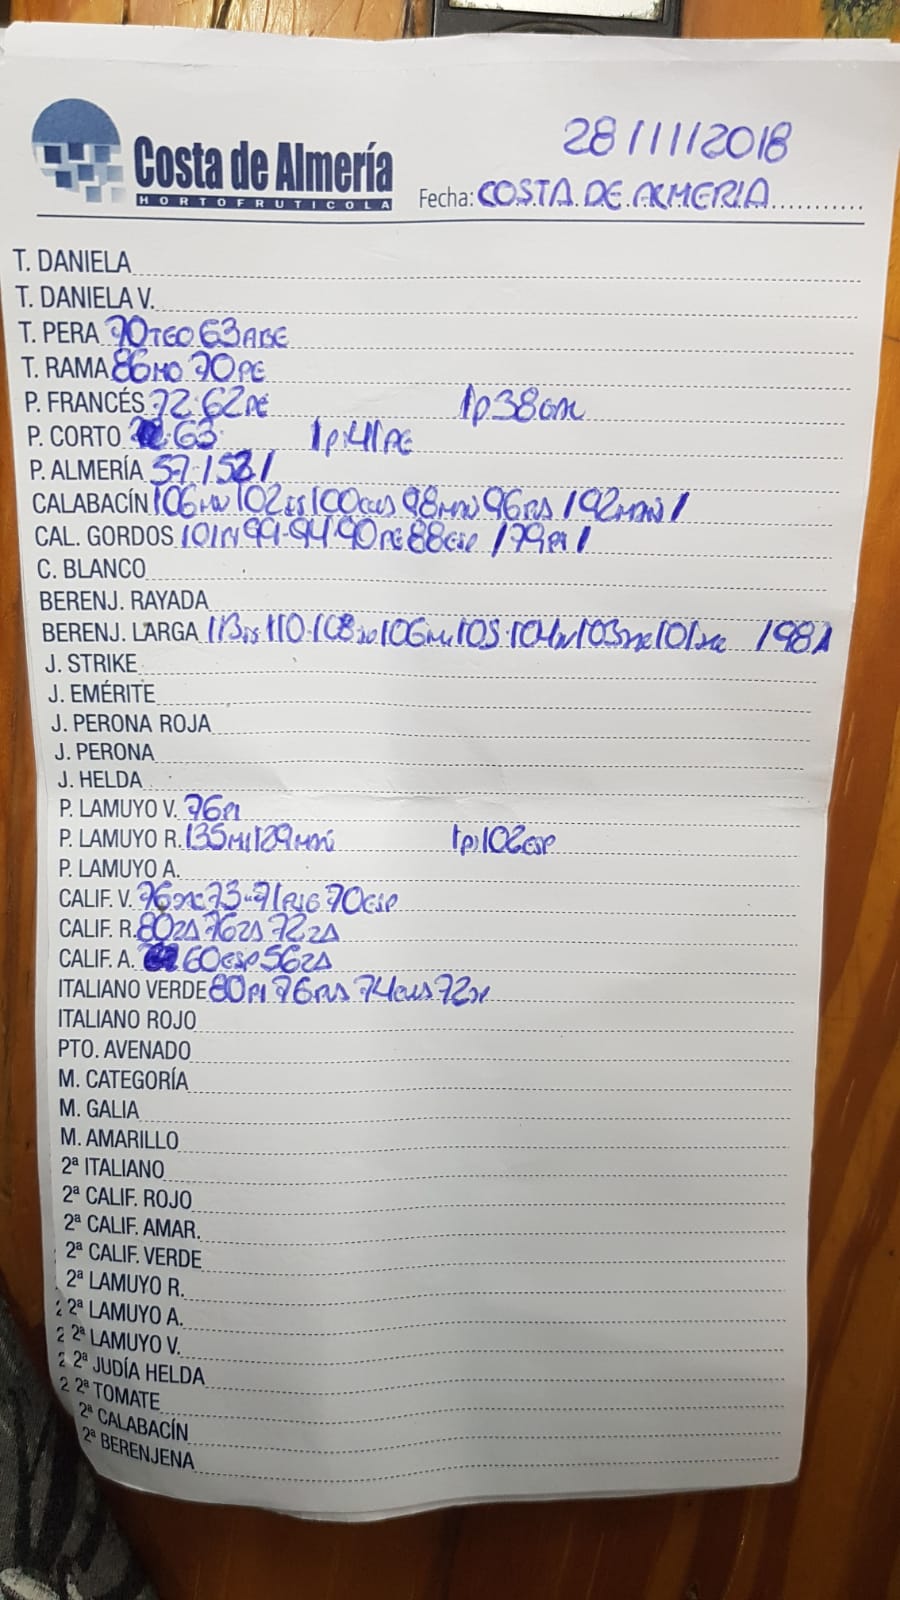 28/11/2018
Costa de Almería
HORTOFRUTICOLA
Fecha: COSTA DE ALMERIA
T. DANIELA
T. DANIELA V.
T. PERA 70TEO 63ABE
T. RAMA 86MO 70PE
P. FRANCÉS 72·62PE 1p38
P. CORTO 63 1p·41PE
P. ALMERÍA 57·1521
CALABACÍN 106 102 100 98 96 /92 /
CAL. GORDOS 101IN 99-94 90PE 88ESP /79PI /
C. BLANCO
BERENJ. RAYADA
BERENJ. LARGA 113 110·108 106 105·104 103 101 /98A
J. STRIKE
J. EMÉRITE
J. PERONA ROJA
J. PERONA
J. HELDA
P. LAMUYO V. 76PI
P. LAMUYO R. 135MI 129 1p102ESP
P. LAMUYO A.
CALIF. V. 76 73-71 70ESP
CALIF. R. 80ZA 76ZA 72ZA
CALIF. A. 60ESP 56ZA
ITALIANO VERDE 80PI 76 74 72
ITALIANO ROJO
PTO. AVENADO
M. CATEGORÍA
M. GALIA
M. AMARILLO
2ª ITALIANO
2ª CALIF. ROJO
2ª CALIF. AMAR.
2ª CALIF. VERDE
2ª LAMUYO R.
2 2ª LAMUYO A.
2 2ª LAMUYO V.
2 2ª JUDÍA HELDA
2 2ª TOMATE
2ª CALABACÍN
2ª BERENJENA